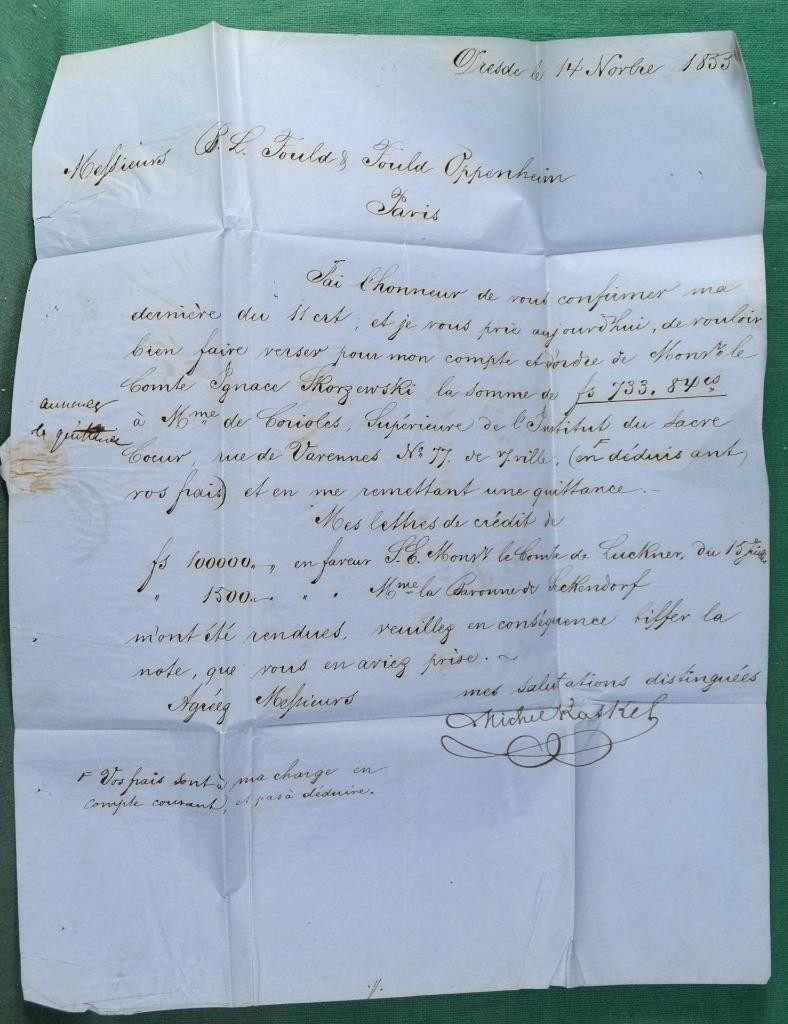 Dresde le 14 Novbre 1855
Messieurs B. L. Fould & Fould Oppenheim
Paris
J'ai l'honneur de vous confirmer ma
dernière du 11 crt, et je vous prie aujourd'hui, de vouloir
bien faire verser pour mon compte et d'ordre de Monsr. le
Comte Ignace Skorzewski la somme de fs 733. 84 cs
à Mme de Coriolis, Supérieure de l'Institut du Sacre
Coeur, rue de Varennes No. 77. de v/ville, (en déduisant
vos frais) et en me remettant une quittance.—
annuler
la quittance
Mes lettres de crédit de
fs 100000 „ „ en faveur S. E. Monsr. le Comte de Luckner, du 15 Juillet
„ 1500 „ - „ „ Mme la Baronne de Seckendorf
m'ont été rendues, veuillez en conséquence biffer la
note, que vous en aviez prise. ~
Agréez Messieurs mes salutations distinguées
Michel Kaskel
F Vos frais sont à ma charge en
compte courant, et pas à déduire.